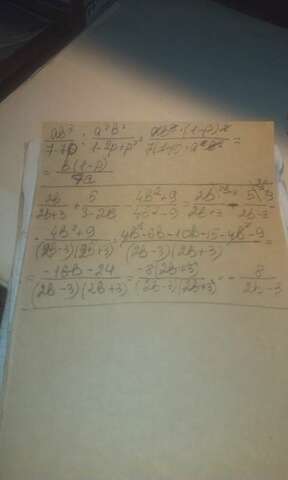 ab² / 7-7p : a²b² / 1-2p+p² = ab² · (1-p)² / 7(1-p) · a²b² =
= b(1-p) / 7a
2b / 2b+3 + 5 / 3-2b - 4b²+9 / 4b²-9 = 2b / 2b+3 - 5 / 2b-3 -
- 4b²+9 / (2b-3)(2b+3) = 4b²-6b-10b-15-4b²-9 / (2b-3)(2b+3) =
= -16b-24 / (2b-3)(2b+3) = -8(2b+3) / (2b-3)(2b+3) = - 8 / 2b-3